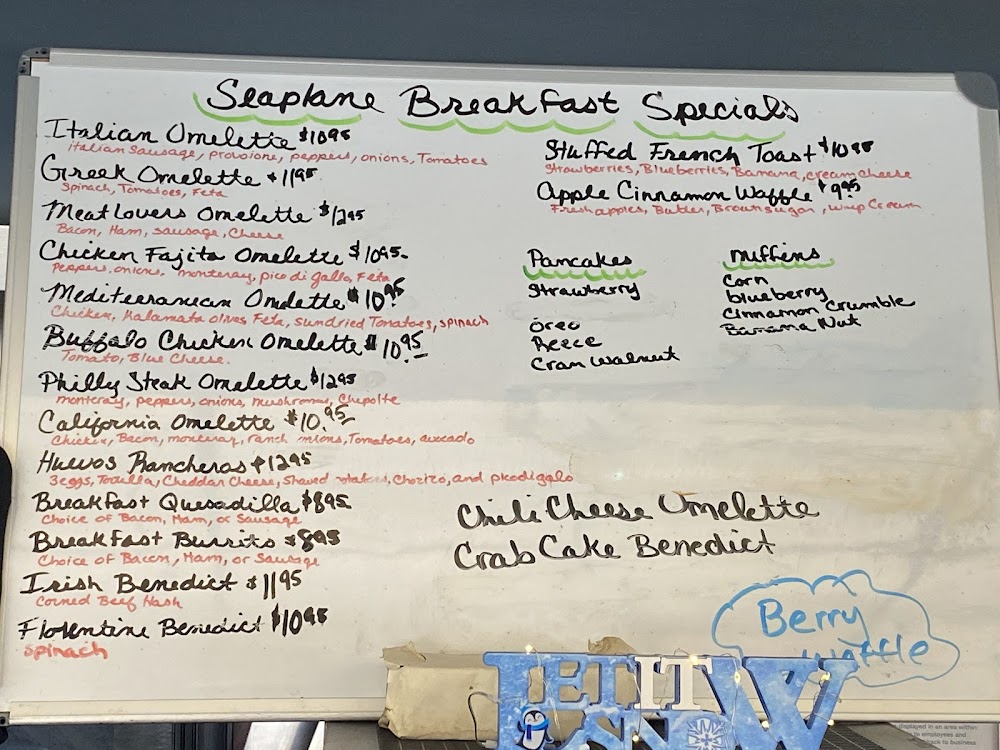 Seaplane Breakfast Specials
Italian Omelette $10.95
italian Sausage, provolone, peppers, onions, Tomatoes
Greek Omelette $11.95
Spinach, Tomatoes, Feta
Meat Lovers Omelette $12.95
Bacon, Ham, sausage, Cheese
Chicken Fajita Omelette $10.95
Peppers, onions, monteray, pico di gallo, Feta
Mediteeranean Omelette $10.95
Chicken, Kalamata olives, Feta, sundried Tomatoes, spinach
Buffalo Chicken Omelette $10.95
Tomato, Blue Cheese.
Philly Steak Omelette $12.95
monteray, peppers, onions, mushrooms, Chipolte
California Omelette $10.95
Chicken, Bacon, monteray, ranch onions, Tomatoes, avocado
Huevos Rancheros $12.95
3 eggs, Tortilla, Cheddar Cheese, Shaved, Chorizo, and picodigalo
Breakfast Quesadilla $8.95
Choice of Bacon, Ham, or Sausage
Breakfast Burrito $8.95
Choice of Bacon, Ham, or Sausage
Irish Benedict $11.95
Corned Beef Hash
Florentine Benedict $10.95
spinach
Stuffed French Toast $10.95
Strawberries, Blueberries, Banana, cream cheese
Apple Cinnamon Waffle $9.95
Fresh apples, Butter, Brown sugar, Whip Cream
Pancakes
Strawberry
Oreo
Reece
Cran Walnut
Muffins
Corn
blueberry
Cinnamon Crumble
Banana Nut
Chili Cheese Omelette
Crab Cake Benedict
Berry
Waffle
LET IT
SNOW
displayed in an area within
to employees and
back to business